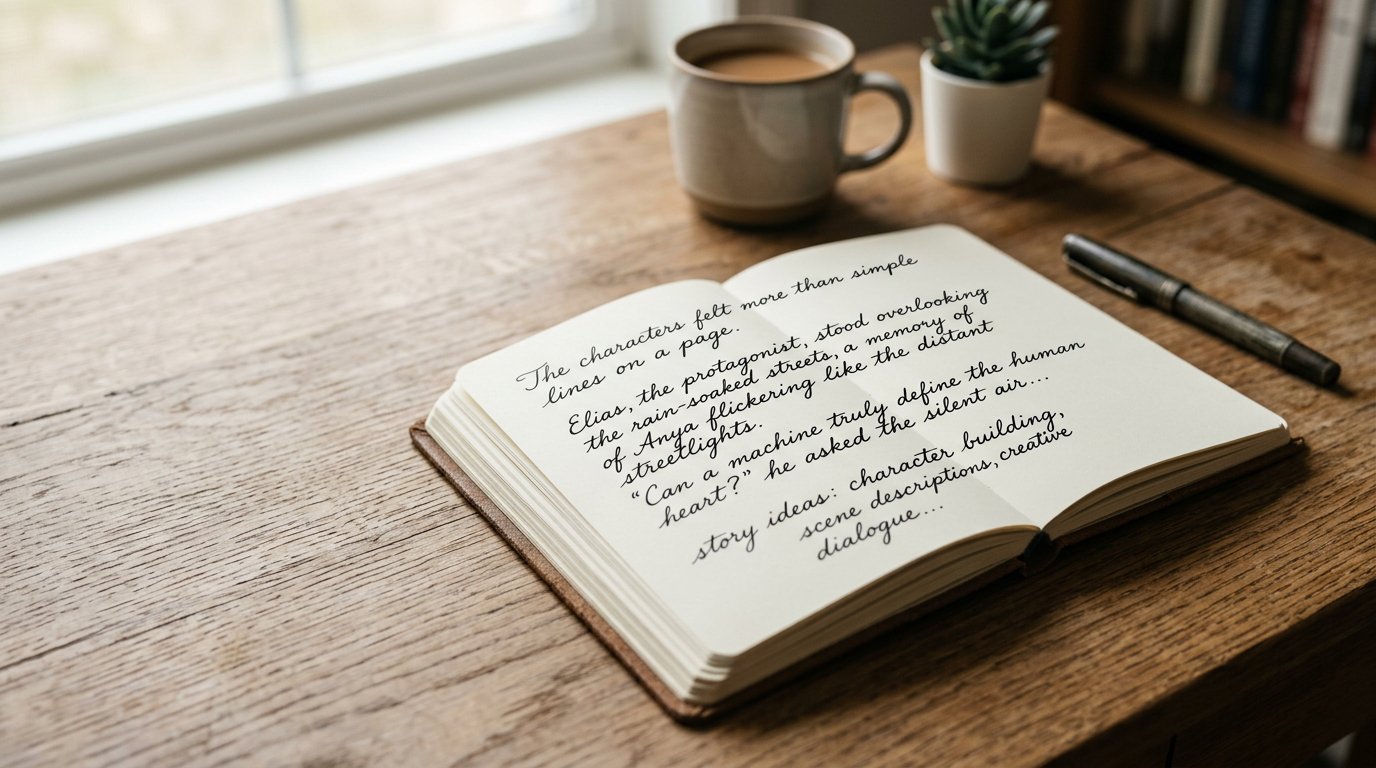 The characters felt more than simple
lines on a page.
Elias, the protagonist, stood overlooking
the rain-soaked streets, a memory of
of Anya flickering like the distant
streetlights.
"Can a machine truly define the human
heart?" he asked the silent air...
story ideas: character building,
scene descriptions, creative
dialogue...